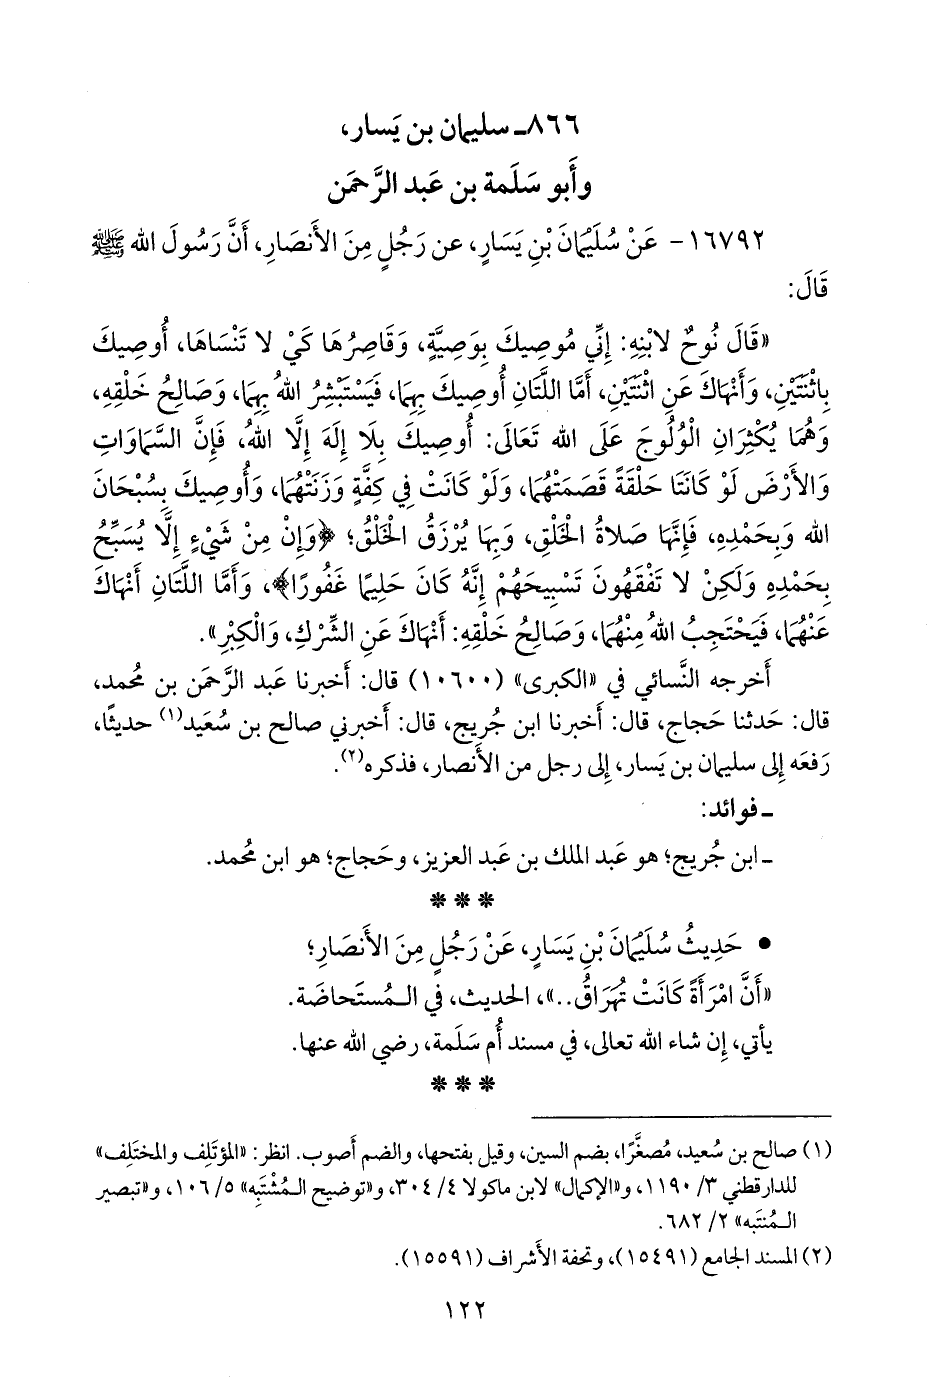 ٨٦٦ـ سليمان بن يَسار،
وأَبو سَلَمة بن عَبد الرَّحمَن
١٦٧٩٢- عَنْ سُلَيْمَانَ بْنِ يَسَارٍ، عن رَجُلٍ مِنَ الأَنصَارِ، أَنَّ رَسُولَ الله ﷺ
قَالَ:
«قَالَ نُوحٌ لابْنِهِ: إِنِّي مُوصِيكَ بِوَصِيَّةٍ، وَقَاصِرُهَا كَيْ لا تَنْسَاهَا، أُوصِيكَ
بِاثْنَتَيْنِ، وَأَنْهَاكَ عَنِ اثْنَتَيْنِ، أَمَّا اللَّتَانِ أُوصِيكَ بِهِمَا، فَيَسْتَبْشِرُ اللهُ بِهِمَا، وَصَالِحُ خَلْقِهِ،
وَهُمَا يُكْثِرَانِ الْوُلُوجَ عَلَى الله تَعَالَى: أُوصِيكَ بِلَا إِلَهَ إِلَّا اللهُ، فَإِنَّ السَّمَاوَاتِ
وَالأَرْضَ لَوْ كَانَتَا حَلْقَةً قَصَمَتْهُمَا، وَلَوْ كَانَتْ فِي كِفَّةٍ وَزَنَتْهُمَا، وَأُوصِيكَ بِسُبْحَانَ
الله وَبِحَمْدِهِ، فَإِنَّهَا صَلاةُ الْخَلْقِ، وَبِهَا يُرْزَقُ الْخَلْقُ؛ ﴿وَإِنْ مِنْ شَيْءٍ إِلَّا يُسَبِّحُ
بِحَمْدِهِ وَلَكِنْ لا تَفْقَهُونَ تَسْبِيحَهُمْ إِنَّهُ كَانَ حَلِيمًا غَفُورًا﴾، وَأَمَّا اللَّتَانِ أَنْهَاكَ
عَنْهُمَا، فَيَحْتَجِبُ اللهُ مِنْهُمَا، وَصَالِحُ خَلْقِهِ: أَنْهَاكَ عَنِ الشِّرْكِ، وَالْكِبْرِ».
أَخرجه النَّسائي في «الكبرى» (١٠٦٠٠) قال: أَخبرنا عَبد الرَّحمَن بن مُحمد،
قال: حَدثنا حَجاج، قال: أَخبرنا ابن جُريج، قال: أَخبرني صالح بن سُعَيد(١) حديثًا،
رَفعَه إِلى سليمان بن يَسار، إِلى رجل من الأَنصار، فذكره(٢).
ـ فوائد:
ـ ابن جُريج؛ هو عَبد الملك بن عَبد العزيز، وحَجاج؛ هو ابن مُحمد.
* * *
• حَدِيثُ سُلَيْمَانَ بْنِ يَسَارٍ، عَنْ رَجُلٍ مِنَ الأَنصَارِ؛
«أَنَّ امْرَأَةً كَانَتْ تُهَرَاقُ..»، الحديث، في الـمُستَحاضَة.
يأتي، إِن شاء الله تعالى، في مسند أُم سَلَمة، رضي الله عنها.
* * *
(١) صالح بن سُعيد، مُصغَّرًا، بضم السين، وقيل بفتحها، والضم أصوب. انظر: «المؤتَلِف والمختَلِف»
للدارقطني ٣/ ١١٩٠، و«الإكمال» لابن ماكولا ٤/ ٣٠٤، و«توضيح الـمُشْتَبِه» ٥/ ١٠٦، و«تبصير
الـمُنتَبه» ٢/ ٦٨٢.
(٢) المسند الجامع (١٥٤٩١)، وتحفة الأَشراف (١٥٥٩١).
١٢٢